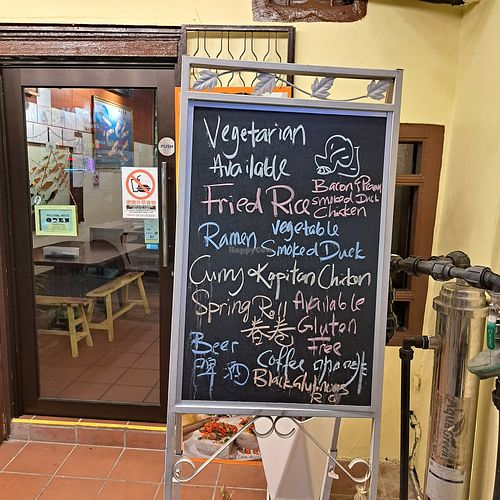 Vegetarian
Available
Fried Rice
Bacon
smoked Duck
Chicken
Ramen vegetable
Smoked Duck
Curry Kapitan Chicken
Spring Roll
春卷
Available
Gluton
Free
Beer
啤酒
Coffee
PUSH
OPEN
HappyCow